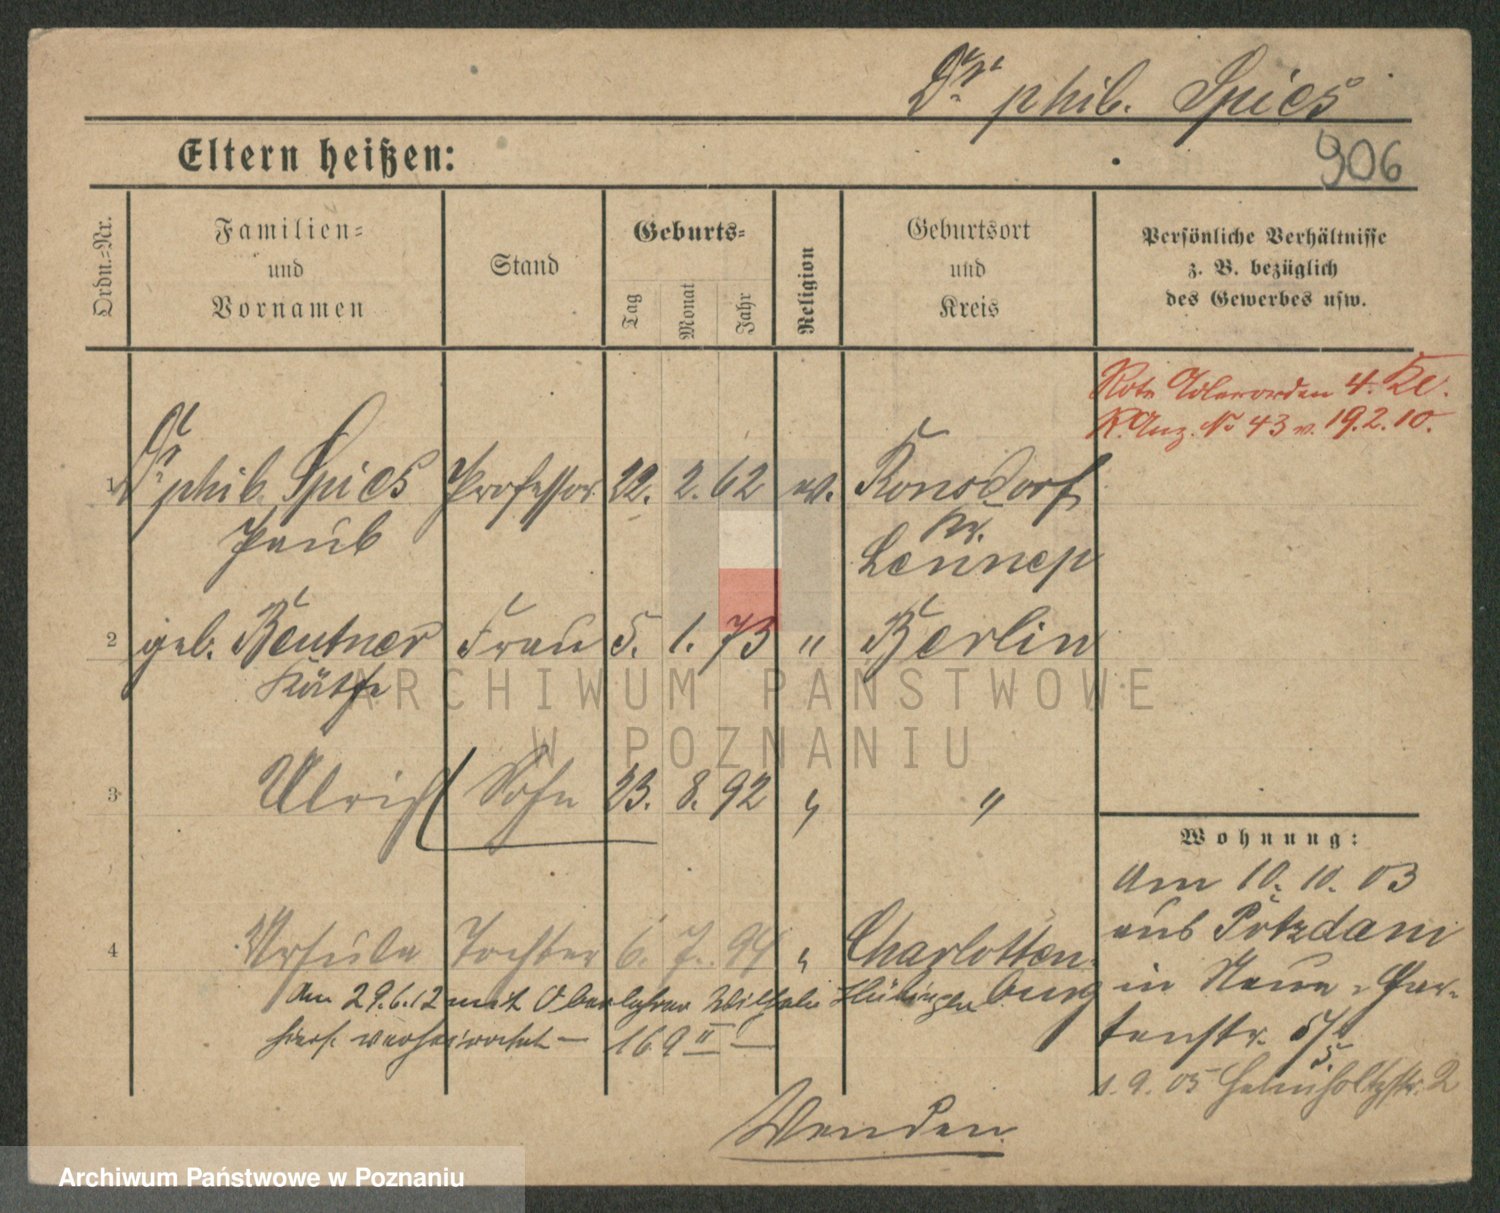 Dr. phil. Spies
Eltern heißen:
906
Ordn.=Nr.
Familien=
und
Vornamen
Stand
Geburts=
Tag
Monat
Jahr
Religion
Geburtsort
und
Kreis
Persönliche Verhältnisse
z. B. bezüglich
des Gewerbes usw.
Rote Adlerorden 4. Kl.
R. Anz. No 43 v. 19.2.10.
1 Dr. phil. Spies Professor 22. 2. 62 ev. Ronsdorf
Paul Kr.
Lennep
2 geb. Beutner Frau 5. 1. 73 " Berlin
Käthe
ARCHIWUM PAŃSTWOWE
W POZNANIU
3 Ulrich Sohn 23. 8. 92 " "
4 Ursula Tochter 6. 7. 94 " Charlotten-
burg
Am 29.6.12 mit Oberlehrer Wilhelm
hier verheiratet — 169 II —
Wohnung:
Am 10. 10. 03
aus Potzdam
in Neue-Gar-
tenstr.
1. 9. 05 Helmholtzstr. 2
Wenden
Archiwum Państwowe w Poznaniu